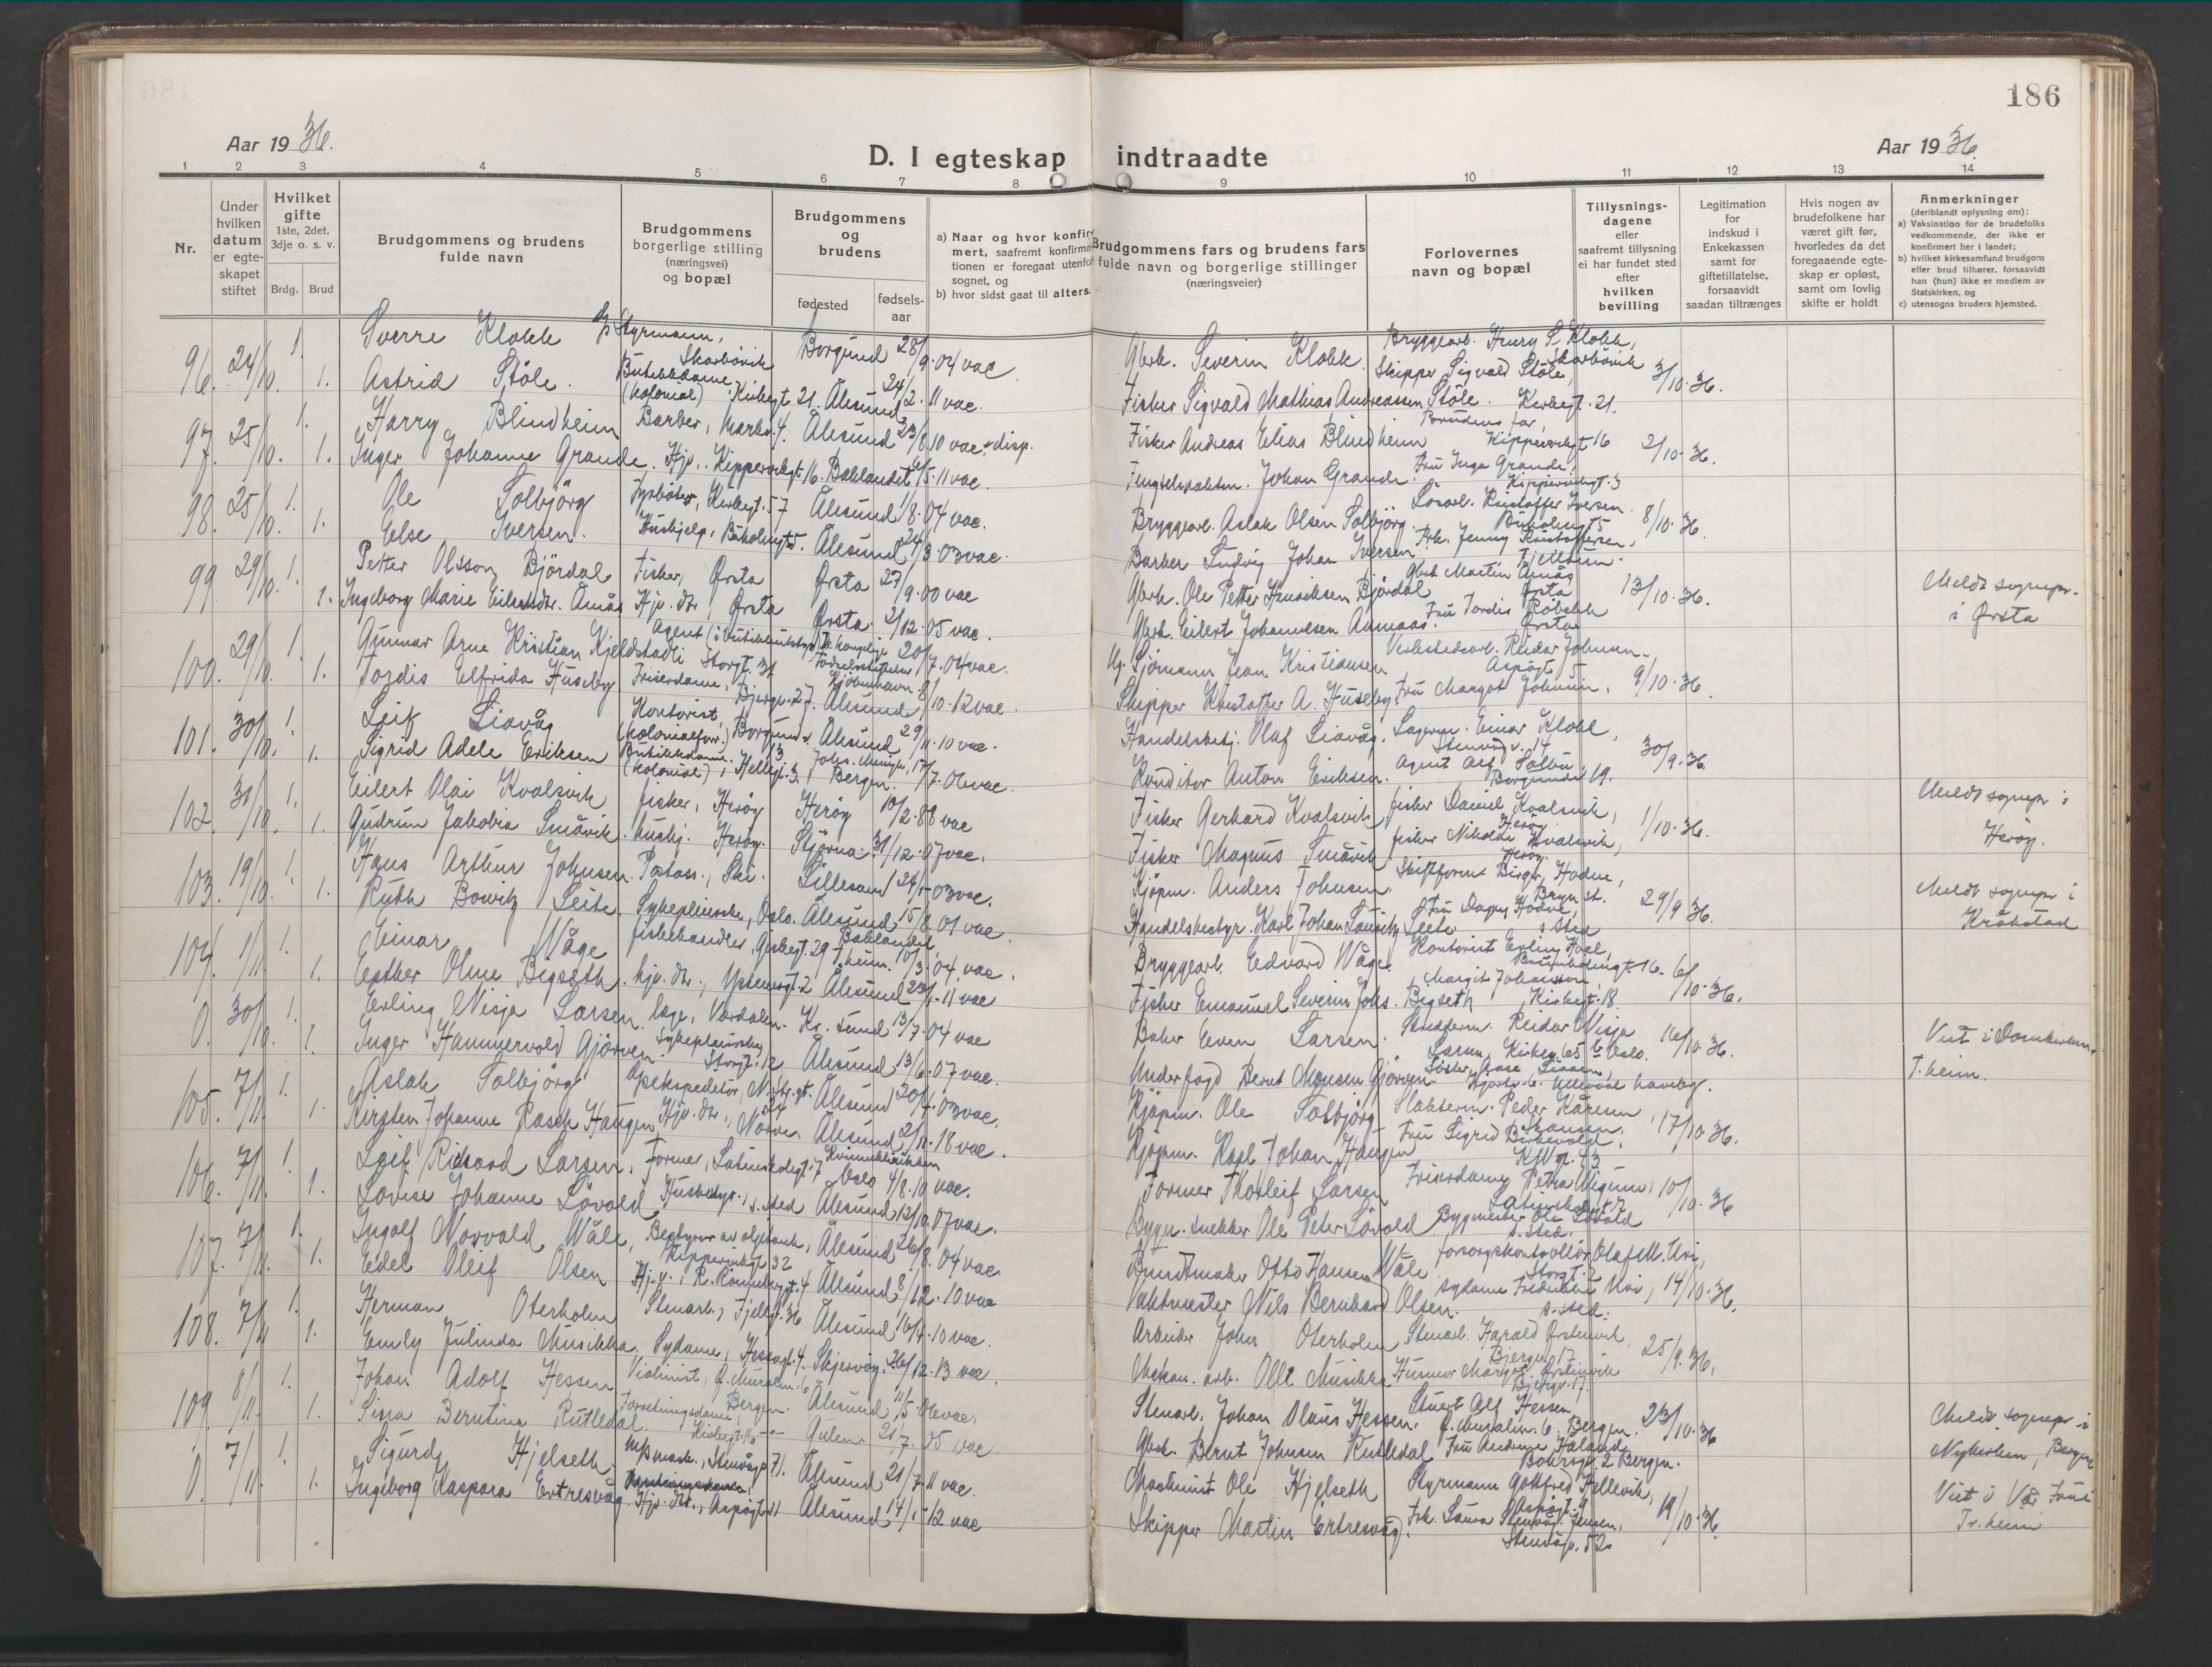 186
Aar 1936.
D. I egteskap indtraadte
Aar 1936.
1 2 3 4 5 6 7 8 9 10 11 12 13 14
Nr.
Under hvilken datum er egteskapet stiftet
Hvilket gifte 1ste, 2det, 3dje o. s. v.
Brdg. Brud
Brudgommens og brudens fulde navn
Brudgommens borgerlige stilling (næringsvei) og bopæl
Brudgommens og brudens
fødested
fødselsaar
a) Naar og hvor konfirmert, saafremt konfirmationen er foregaat utenfor sognet, og
b) hvor sidst gaat til alters.
Brudgommens fars og brudens fars fulde navn og borgerlige stillinger (næringsveier)
Forlovernes navn og bopæl
Tillysningsdagene eller saafremt tillysning ei har fundet sted efter hvilken bevilling
Legitimation for indskud i Enkekassen samt for giftetillatelse, forsaavidt saadan tiltrænges
Hvis nogen av brudefolkene har været gift før, hvorledes da det foregaaende egteskap er opløst, samt om lovlig skifte er holdt
Anmerkninger (deriblandt oplysning om):
a) Vaksination for de brudefolks vedkommende, der ikke er konfirmert her i landet;
b) hvilket kirkesamfund brudgom eller brud tilhører, forsaavidt han (hun) ikke er medlem av Statskirken, og
c) utensogns bruders hjemsted.
96. 24/10. 1. Sverre Klokk Styrmann, Skarbövik Borgund 28/9.04 vac. Gbrk. Severin Klokk. Bryggearb. Henry S. Klokk, Skarbövik 3/10.36.
1. Astrid Stöle. Butikkdame (kolonial) Kirkegt. 21. Ålesund 24/2.11 vac. Fisker Sigvald Mathias Andreassen Stöle. Skipper Sigvald Stöle, Kirkegt. 21.
97. 25/10. 1. Harry Blindheim Barber, 4. Ålesund 23/8.10 vac. disp. Fisker Andreas Elias Blindheim Brudens far, Kippervikgt 16 2/10.36.
1. Inger Johanne Grande. Hjv., Kippervikgt. 16. Baklandet 6/5.11 vac. Johan Grande. Fru Inga Grande, Kippervikgt. 3
98. 25/10. 1. Ole Solbjörg Kirkegt. 57 Ålesund 1/8.04 vac. Bryggearb. Aslak Olsen Solbjörg. Kristoffer Iversen. 8/10.36.
1. Else Iversen. Hushjelp, Ålesund 24/3.03 vac. Barber Ludvig Johan Iversen Frk. Jenny Kristoffersen,
99. 29/10. 1. Petter Olsson Björdal Fisker, Ørsta Ørsta 27/9.00 vac Gbrk. Ole Petter Henriksen Björdal Gbrk Martin Åmås Ørsta 13/10.36. Meldt sognepr. i Ørsta
1. Ingeborg Marie Eilertsdtr. Åmås Hjv. dtr., Ørsta Ørsta 2/12.05 vac. Gbrk. Eilert Johannesen Aamaas. Fru Tordis Ørsta
100. 29/10. 1. Gunnar Arne Kristian Kjeldstadli Agent Storgt. 31 Kjöbenhavn 20/7.04 vac. Ug. Sjömann Jean Kristiansen Verkstedarb. Reidar Johnsen, Aspögt 5 9/10.36.
1. Tordis Elfrida Huseby Friserdame, Bjergv. 27. Ålesund 8/10.12 vac. Skipper Kristoffer A. Huseby. Fru Margot Johnsen.
101. 30/10. 1. Leif Liavåg Kontorist, (kolonialforr.) Ålesund 29/11.10 vac. Handelsbetj. Olaf Liavåg. Lagerm. Einar Klokk, 14 30/9.36.
1. Sigrid Adele Eriksen Butikkdame (kolonial), Hellegt. 3. Bergen. 17/7.06 vac. Konditor Anton Eriksen. Agent Alf Solbu 19.
102. 31/10. 1. Eilert Olai Kvalsvik fisker, Herøy Herøy 10/2.88 vac Fisker Gerhard Kvalsvik fisker Daniel Kvalsvik, Herøy 1/10.36. Meldt sognepr. i Herøy.
1. Gudrun Jakobia Småvik hushj. Herøy. 31/12.07 vac. Fisker Magnus Småvik fisker Nikolai Kvalsvik, Herøy.
103. 19/10. 1. Hans Arthur Johnsen. Postass., Ski. Lillesand 24/1.03 vac. Kjöpm. Anders Johnsen. Birger Hodne, Bryn st. 29/9 36. Meldt sognepr i Kråkstad
1. Ruth Bowitz Leite. Sykepleierske, Oslo. Ålesund 15/8.01 vac. Handelsbestyr. Karl Johan Lauritz Leite Fru Dagny Hodne, s. sted
104. 1/11. 1. Einar Våge fiskehandler, 29 Baklandet T.heim. 10/3.04 vac. Bryggearb. Edvard Våge. Kontorist Erling 16. 6/10.36.
1. Esther Oline Bigseth. hjv. dtr., 2 Ålesund 23/1.11 vac Fisker Emanuel Severin Johs. Bigseth Margit Johansen, Kirkegt. 18
0. 30/10. 1. Erling Nisja Larsen. lege, Verdalen. Kr. sund 13/7.04 vac Baker Even Larsen Reidar Nisja Larsen, Kirkev. 65 Oslo. 16/10.36. Viet i Domkirken. T.heim.
1. Inger Hammervold Gjörven. Sykepleierske, Storgt. 12 Ålesund 13/6.07 vac. Underfogd Bernt Monsen Gjörven. Söster Aase Larsen, Ullevål haveby.
105. 7/11. 1. Aslak Solbjörg 24 Ålesund 20/7.03 vac. Kjöpm. Ole Solbjörg Slakterm. Peder Kåresen 17/10.36.
1. Kirsten Johanne Rasch Haugen Hjv. dtr., Nörve. Ålesund 2/11.18 vac. Kjöpm. Karl Johan Haugen Fru Sigrid Birkevold.
106. 7/11. 1. Leif Rikard Larsen. Former, Latinskolegt. 7 Oslo 4/8.10 vac. Former Thorleif Larsen Friserdame Petra 10/10.36
1. Lovise Johanne Lövold. Husbestyr., s. sted Ålesund 12/10.07 vac. Bygn. snekker Ole Peter Lövold Bygmester Ole Lövold s. sted.
107. 7/11. 1. Ingolf Norvald Våle, Bestyrer av Kippervikgt 32 Ålesund 26/8.04 vac. Buntmaker Otto Hansen Våle Forsorgskontrollör Olaf M. Uri, Storgt. 2 14/10.36.
1. Edel Oleif Olsen 4 Ålesund 8/12.10 vac Vaktmester Nils Bernhard Olsen. Sydame Fredrikke Uri, s. sted.
108. 7/11. 1. Herman Oterholm Stenarb., Fjellgt. 36 Ålesund 16/7.10 vac. Arbeider John Oterholm Stenarb. Harald Ørstenvik, Bjergv. 17. 25/9.36.
1. Emly Julinda Musikka, Sydame, Hessagt. 4. Skjervöy. 26/12.13 vac. Mekan. arb. Olli Musikka Husmor Margot Ørstenvik Bjergv. 17.
109. 8/11. 1. Johan Adolf Hessen Violinist, Bergen. Ålesund 11/5.06 vac. Stenarb. Johan Olaus Hessen. Stuert Alf Hessen, Bergen. 23/10.36 Meldt sognepr i Nykirken, Bergen
1. Signa Berntine Rutledal. Forretningsdame, Kirkegt. 16 Gulen. 21/7.05 vac. Gbrk. Bernt Johnsen Rutledal Fru Andrine Haland, 2 Bergen.
0. 7/11. 1. Sigurd Hjelseth 71. Ålesund 21/7.11 vac. Maskinist Ole Hjelseth Styrmann Gottfred Fellevik, 19/10.36. Viet i Vår Frue Tr.heim
1. Ingeborg Kaspara Ertresvåg. Hjv. dtr., Aspögt. 11 Ålesund 14/1.12 vac Skipper Martin Ertresvåg. Frk. Laura Jensen, Stenvågv. 52.